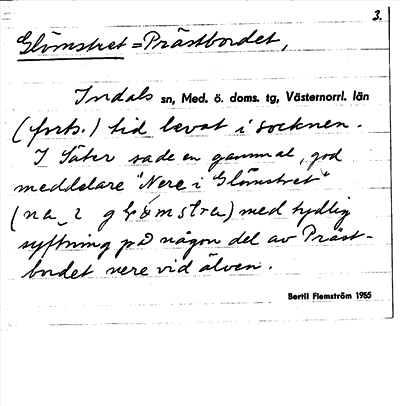 3.
Glömstret = Prästbordet,
Indals sn, Med. ö. doms. tg, Västernorrl. län
(forts.) tid levat i socknen.
I Säter sade en gammal, god
meddelare "Nere i Glömstret"
med tydlig
syftning på någon del av Präst-
bordet nere vid älven.
Bertil Flemström 1955